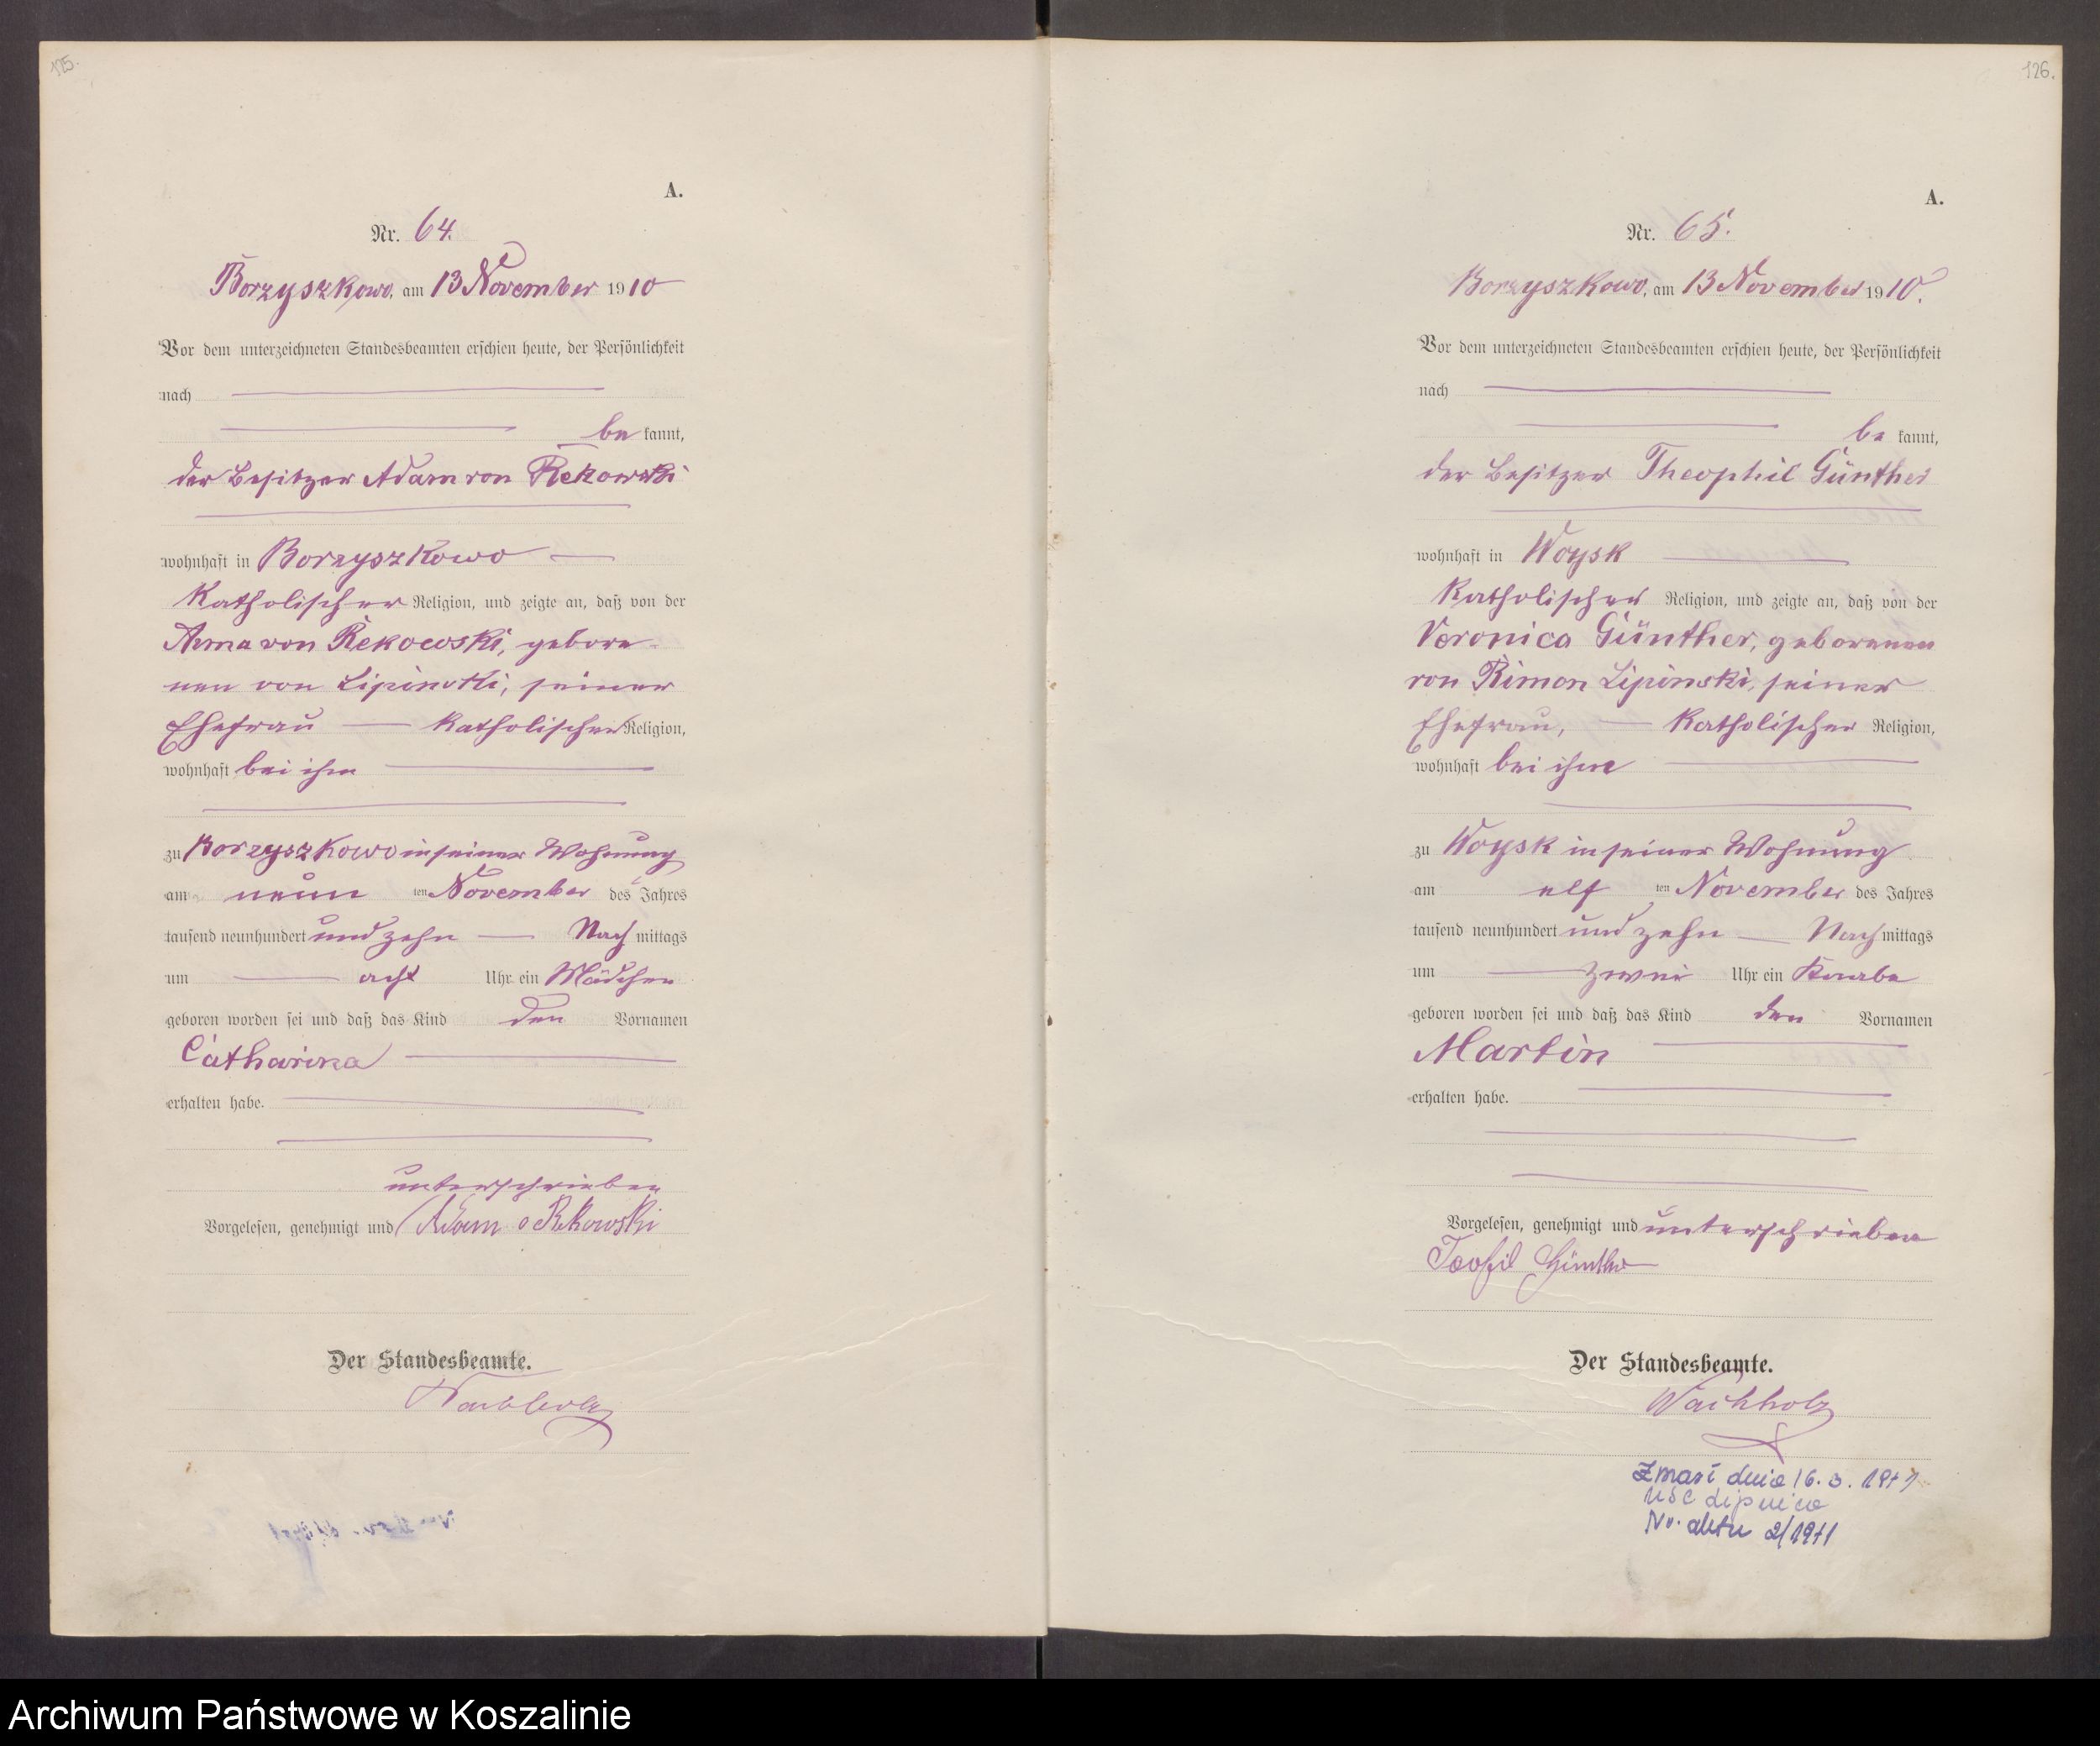 125.
A.
Nr. 64.
Borzyszkowo, am 13 November 1910
Vor dem unterzeichneten Standesbeamten erschien heute, der Persönlichkeit
nach
be kannt,
der Besitzer Adam von Rekowski
wohnhaft in Borzyszkowo
Katholischer Religion, und zeigte an, daß von der
Anna von Rekowski, gebore-
nen von Lipinski, seiner
Ehefrau Katholischer Religion,
wohnhaft bei ihm
zu Borzyszkowo in seiner Wohnung
am neun ten November des Jahres
tausend neunhundert und zehn Nach mittags
um acht Uhr ein Mädchen
geboren worden sei und daß das Kind den Vornamen
Catharina
erhalten habe.
unterschrieben
Vorgelesen, genehmigt und Adam v Rekowski
Der Standesbeamte.
Wachholz
126.
A.
Nr. 65.
Borzyszkowo, am 13 November 1910.
Vor dem unterzeichneten Standesbeamten erschien heute, der Persönlichkeit
nach
be kannt,
der Besitzer Theophil Günther
wohnhaft in Woysk
Katholischer Religion, und zeigte an, daß von der
Veronica Günther, geborenen
von Rimon Lipinski, seiner
Ehefrau, Katholischer Religion,
wohnhaft bei ihm
zu Woysk in seiner Wohnung
am elf ten November des Jahres
tausend neunhundert und zehn Nach mittags
um zwei Uhr ein Knabe
geboren worden sei und daß das Kind den Vornamen
Martin
erhalten habe.
Vorgelesen, genehmigt und unterschrieben
Teofil Günther
Der Standesbeamte.
Wachholz
Zmarł dnia 16. 3. 1971
USC Lipnica
Nr. aktu 2/1971
Archiwum Państwowe w Koszalinie